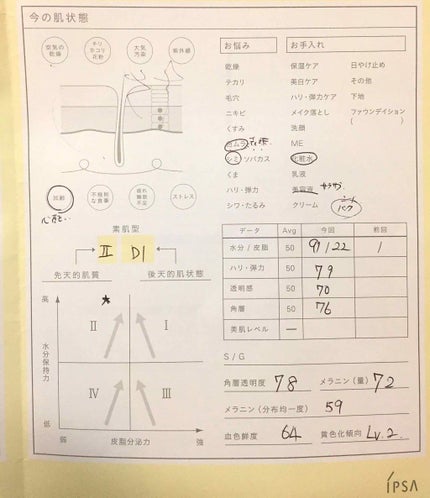 今の肌状態
空気の乾燥
チリ ホコリ 花粉
大気汚染
紫外線
加齢
不規則な食事
疲れ 睡眠不足
ストレス
素肌型
Ⅱ D1
先天的肌質
後天的肌状態
高
水分保持力
低
Ⅱ
Ⅰ
Ⅳ
Ⅲ
弱
皮脂分泌力
強
お悩み
お手入れ
乾燥
保湿ケア
日やけ止め
テカリ
美白ケア
その他
毛穴
ハリ・弾力ケア
下地
ニキビ
メイク落とし
ファウンデイション
( )
くすみ
洗顔
ME
シミ・ソバカス
化粧水
くま
乳液
ハリ・弾力
美容液
シワ・たるみ
クリーム
データ Avg 今回 前回
水分/皮脂 50 91/22 /
ハリ・弾力 50 79
透明感 50 70
角層 50 76
美肌レベル —
S/G
角層透明度 78 メラニン(量) 72
メラニン(分布均一度) 59
血色鮮度 64 黄色化傾向 Lv.2.
IPSA